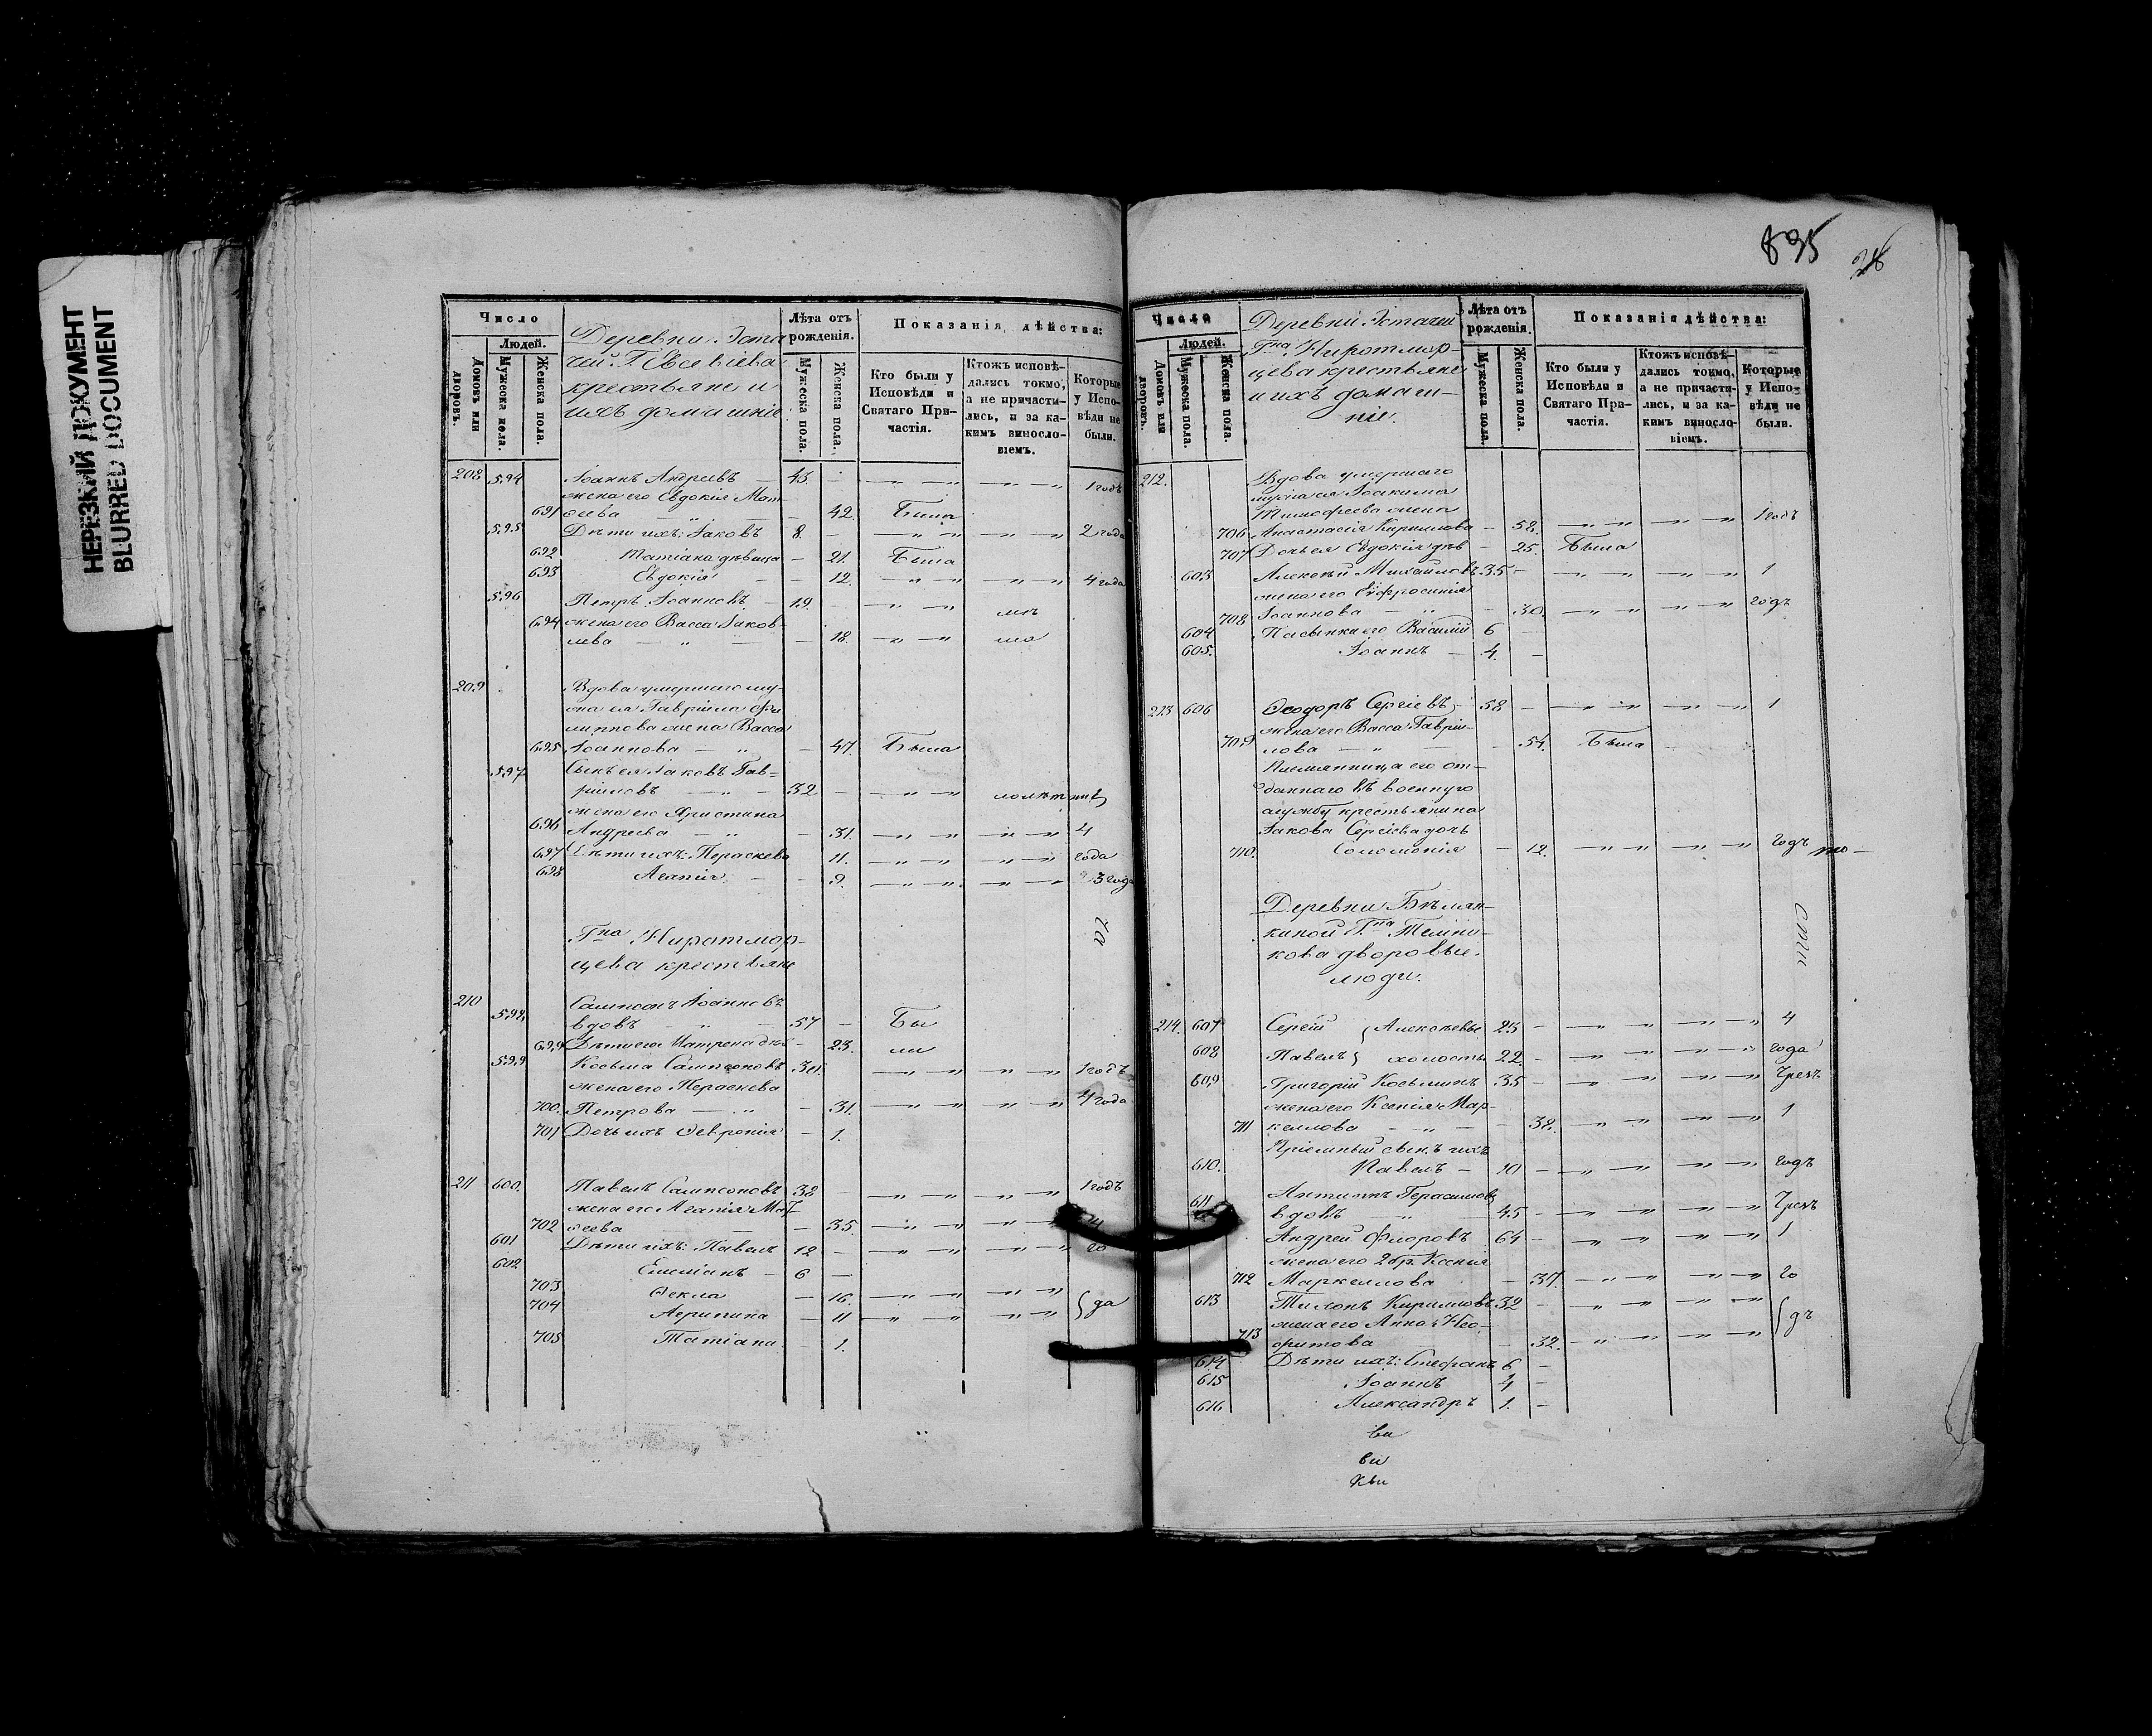 НЕРЕЗКИЙ ДОКУМЕНТ
BLURRED DOCUMENT
Число
Людей.
Домовъ или дворовъ.
Мужеска пола.
Женска пола.
Деревни Эста
чей Г. Евсевіева
крестьяне и
ихъ домашніе
Лѣта отъ рожденія.
Мужеска пола.
Женска пола.
Показанія дѣйства:
Кто были у Исповѣди и Святаго Причастія.
Ктожъ исповѣдались токмо, а не причастились, и за какимъ винословіемъ.
Которые у Исповѣди не были.
208 594 Іоаннъ Андреевъ — 43. — 1 годъ
жена его Евдокія Мат-
691 ѳеева — 42. Была
595 Дѣти ихъ: Іаковъ 8. — 2 года
692 Татіана дѣвица — 21. Была
693 Евдокія — 12. 4 года
596 Петръ Іоанновъ — 19. — ма
694 жена его Васса Іаков-
лева — 18. ло
209 Вдова умершаго му-
жа ея Гавріила Фи
липпова жена Васса
695 Іоаннова — 47. Была
597 Сынъ ея Іаковъ Гав-
ріиловъ — 32 — лолѣтни
жена его Христина
696 Андреева — 31. 4
697 Дѣти ихъ: Параскева 11. года
698 Агапія — 9. 3 года
Гна Ниротмор-
цева крестьяне
210 Сампсонъ Іоанновъ
598 вдовъ — 57 — Бы
699 Дѣти его Матрена дѣв — 23. ли
599 Косьма Сампсоновъ 30. 1 годъ
жена его Параскева
700. Петрова — 31. 4 года
701 Дочь ихъ Февронія — 1.
211 600. Павелъ Сампсоновъ 38 — 1 годъ
жена его Агапія Мат
702 ѳеева — 35.
601 Дѣти ихъ: Павелъ 12 — го
602 Емеліанъ — 6 —
703 Ѳекла — 16.
704 Агрипина — 11 да
705 Татіана — 1.
895
28
Число
Людей.
Домовъ или дворовъ.
Мужеска пола.
Женска пола.
Деревни Эстачей
Гна Ниротмор-
цева крестьяне
и ихъ домаш-
ніе.
Лѣта отъ рожденія.
Мужеска пола.
Женска пола.
Показанія дѣйства:
Кто были у Исповѣди и Святаго Причастія.
Ктожъ исповѣдались токмо, а не причастились, и за какимъ винословіемъ.
Которые у Исповѣди не были.
212. Вдова умершаго
мужа ея Іоакима
Тимофеева жена
706 Анастасія Кириллова — 58. 1 годъ
707 Дочь ея Евдокія дѣв — 25. Была
603 Алексѣй Михайловъ 35 — 1
жена его Евфросинія
708 Іоаннова — 30. годъ
604 Пасынки его Василій 6 —
605. Іоаннъ — 4. —
213 606 Ѳеодоръ Сергіевъ 58 — 1
жена его Васса Гаврі-
709 лова — 54. Была
Племянница его от-
даннаго въ военную
службу крестьянина
Іакова Сергіева дочь
710. Соломонія — 12. годъ
Деревни Бѣлян-
киной Гна Темни-
кова дворовые
люди.
214. 607 Сергій } Алексѣевы 23 — 4
608 Павелъ } холосты 22 — года
609 Григорій Косьминъ 35 — Чрезъ
жена его Ксенія Мар-
711 келлова — 38. 1
Пріемный сынъ ихъ
610. Павелъ — 10 — годъ
611 Антипъ Герасимовъ
вдовъ — 45 — Чрезъ
Андрей Флоровъ 64 — 1
жена его 2 бр. Ксенія
712 Маркеллова — 37 го
613 Тихонъ Кирилловъ 32 —
жена его Анна Нео-
713 фитова 32. дъ
614 Дѣти ихъ: Стефанъ 6 —
615 Іоаннъ 4 —
616 Александръ 1. —